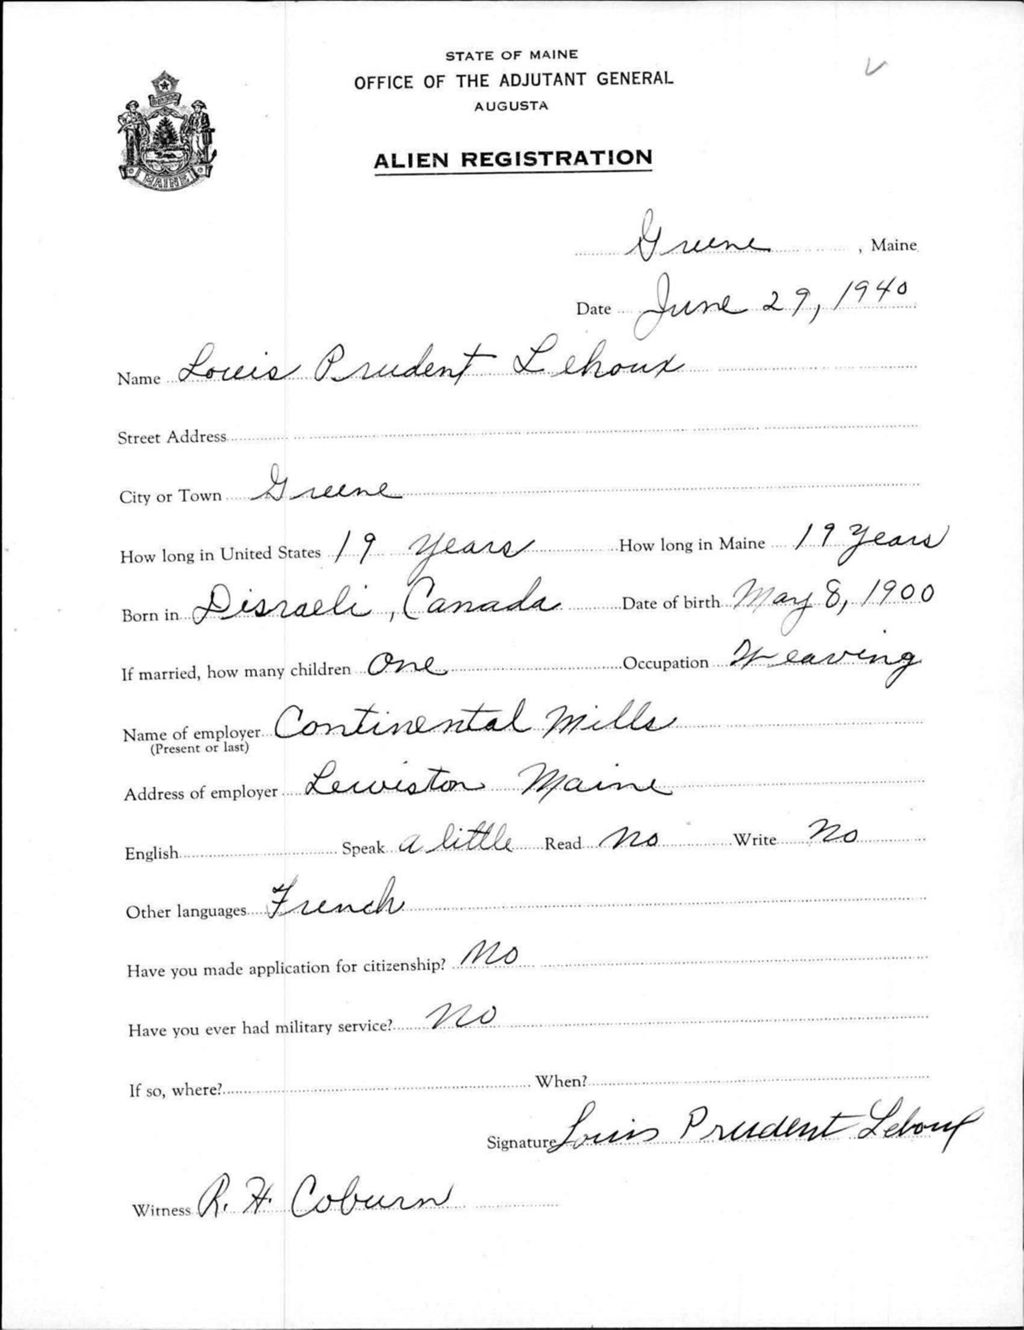 STATE OF MAINE
OFFICE OF THE ADJUTANT GENERAL
AUGUSTA
ALIEN REGISTRATION
MAINE
Greene, Maine
Date June 29, 1940
Name Louis Prudent Lehoux
Street Address
City or Town Greene
How long in United States 19 Years How long in Maine 19 Years
Born in Disraeli, Canada Date of birth May 8, 1900
If married, how many children One Occupation Weaving
Name of employer Continental Mills
(Present or last)
Address of employer Lewiston Maine
English Speak a little Read No Write No
Other languages French
Have you made application for citizenship? No
Have you ever had military service? No
If so, where? When?
Signature Louis Prudent Lehoux
Witness R. H. Coburn